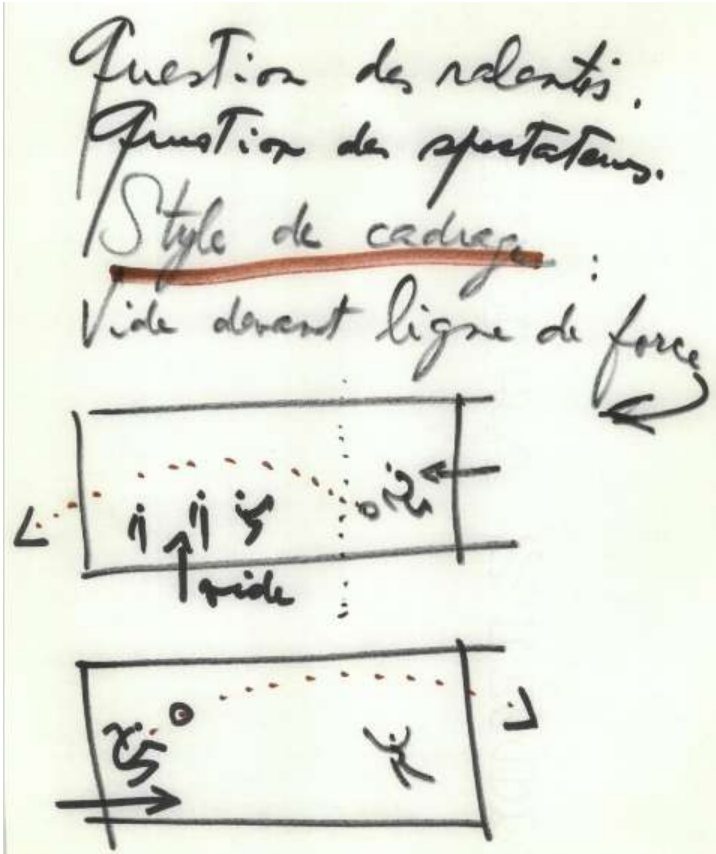 Question des ralentis.
Question des spectateurs.
Style de cadrage :
Vide devant ligne de force
vide